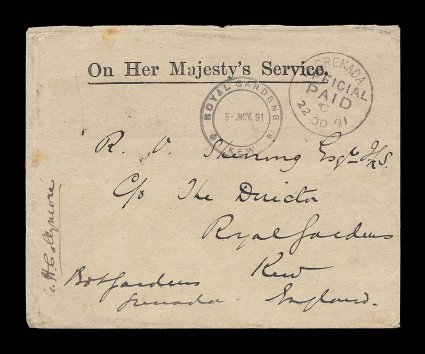 On Her Majesty's Service.
GRENADA
OFFICIAL
PAID
C
22 OC 91
ROYAL GARDENS
9 NOV. 91
KEW
R. Esqre
C/o The Director
Royal Gardens
Kew
England.
Bot Gardens
Grenada